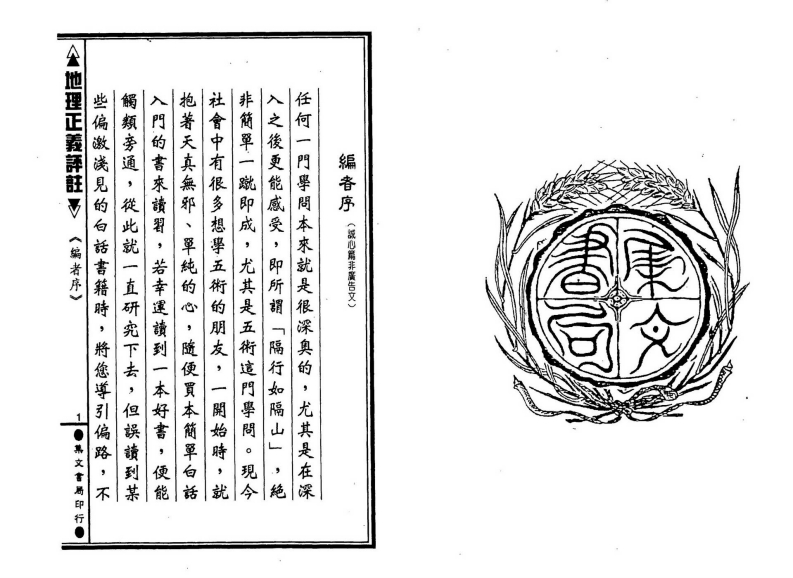 編者序（誠心篇非廣告文）
任何一門學問本來就是很深奥的，尤其是在深
入之後更能感受，即所謂「隔行如隔山」，絕
非簡單一蹴即成，尤其是五術這門學問。現今
社會中有很多想學五術的朋友，一開始時，就
抱著天真無邪、單純的心，隨便買本簡單白話
入門的書來讀習，若幸運讀到一本好書，便能
觸類旁通，從此就一直研究下去，但誤讀到某
些偏激淺見的白話書籍時，將您導引偏路，不
地理正義評註
《編者序》
1
集文書局印行
集文書局